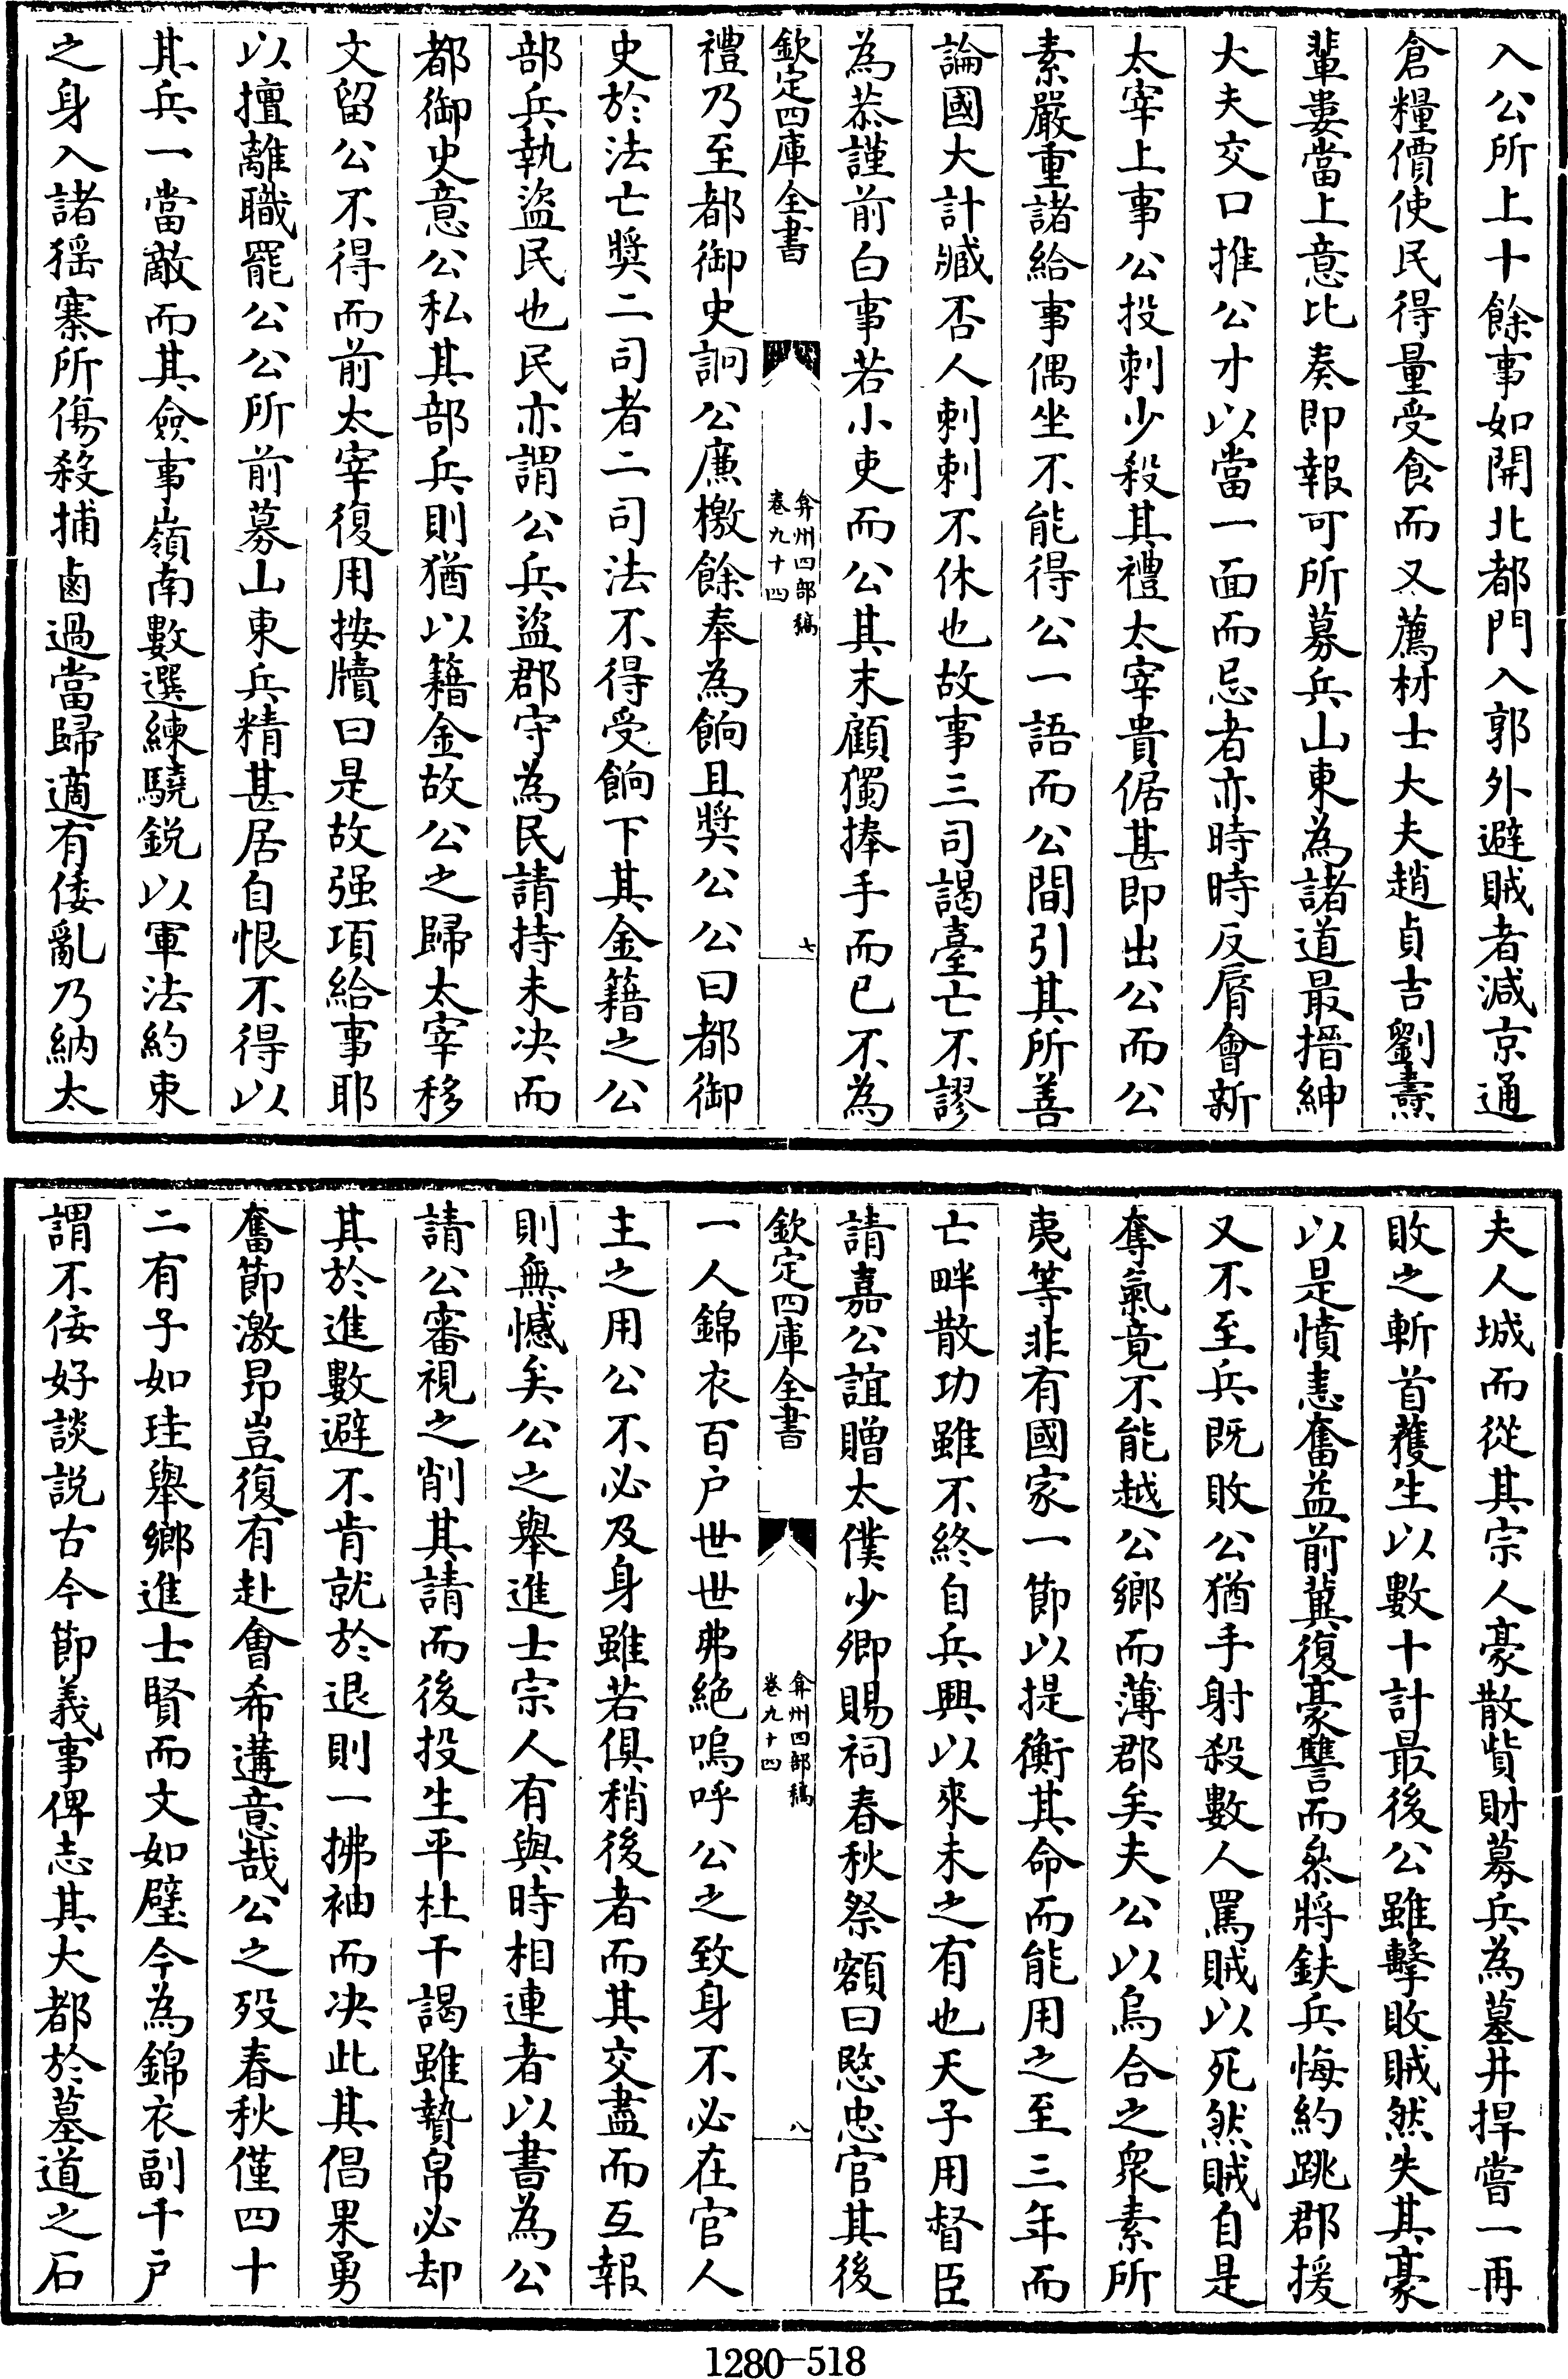 入公所上十餘事如開北都門入郭外避賊者減京通
倉糧價使民得量受食而又薦材士大夫趙貞吉劉燾
輩婁當上意比奏即報可所募兵山東為諸道最搢紳
大夫交口推公才以當一面而忌者亦時時反脣會新
太宰上事公投刺少殺其禮太宰貴倨甚即出公而公
素嚴重諸給事偶坐不能得公一語而公間引其所善
論國大計臧否人刺刺不休也故事三司謁臺亡不謬
為恭謹前白事若小吏而公其末顧獨捧手而已不為
欽定四庫全書
弇州四部稿
卷九十四
七
禮乃至都御史詗公廉檄餘奉為餉且奨公公曰都御
史於法亡奨二司者二司法不得受餉下其金籍之公
部兵執盜民也民亦謂公兵盜郡守為民請持未决而
都御史意公私其部兵則猶以籍金故公之歸太宰移
文留公不得而前太宰復用按牘曰是故强項給事耶
以擅離職罷公公所前募山東兵精甚居自恨不得以
其兵一當敵而其僉事嶺南數選練驍鋭以軍法約束
之身入諸猺寨所傷殺捕鹵過當歸適有倭亂乃納太
夫人城而從其宗人豪散貲財募兵為墓井捍嘗一再
敗之斬首蔓生以數十計最後公雖擊敗賊然失其豪
以是憤恚奮益前冀復豪讐而叅將鈇兵悔約跳郡援
又不至兵既敗公猶手射殺數人罵賊以死然賊自是
奪氣竟不能越公鄉而薄郡矣夫公以烏合之衆素所
夷等非有國家一節以提衡其命而能用之至三年而
亡畔散功雖不終自兵興以來未之有也天子用督臣
請嘉公誼贈太僕少卿賜祠春秋祭額曰愍忠官其後
欽定四庫全書
弇州四部稿
卷九十四
八
一人錦衣百户世世弗絶嗚呼公之致身不必在官人
主之用公不必及身雖若俱稍後者而其交盡而互報
則無憾矣公之舉進士宗人有與時相連者以書為公
請公審視之削其請而後投生平杜干謁雖贄帛必却
其於進數避不肯就於退則一拂袖而决此其倡果勇
奮節激昻豈復有赴會希遘意哉公之殁春秋僅四十
二有子如珪舉鄉進士賢而文如璧今為錦衣副千户
謂不佞好談説古今節義事俾志其大都於墓道之石
1280-518